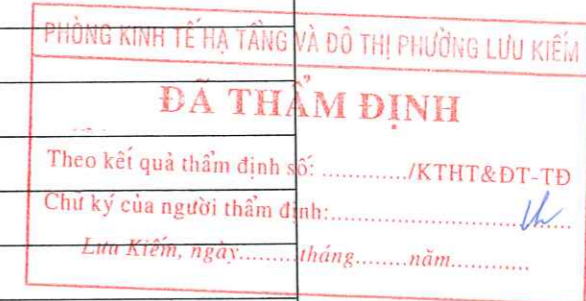 PHÒNG KINH TẾ HẠ TẦNG VÀ ĐÔ THỊ PHƯỜNG LƯU KIẾM
ĐÃ THẨM ĐỊNH
Theo kết quả thẩm định số: ............/KTHT&ĐT-TĐ
Chữ ký của người thẩm định:...................................
Lưu Kiếm, ngày.........tháng........năm............